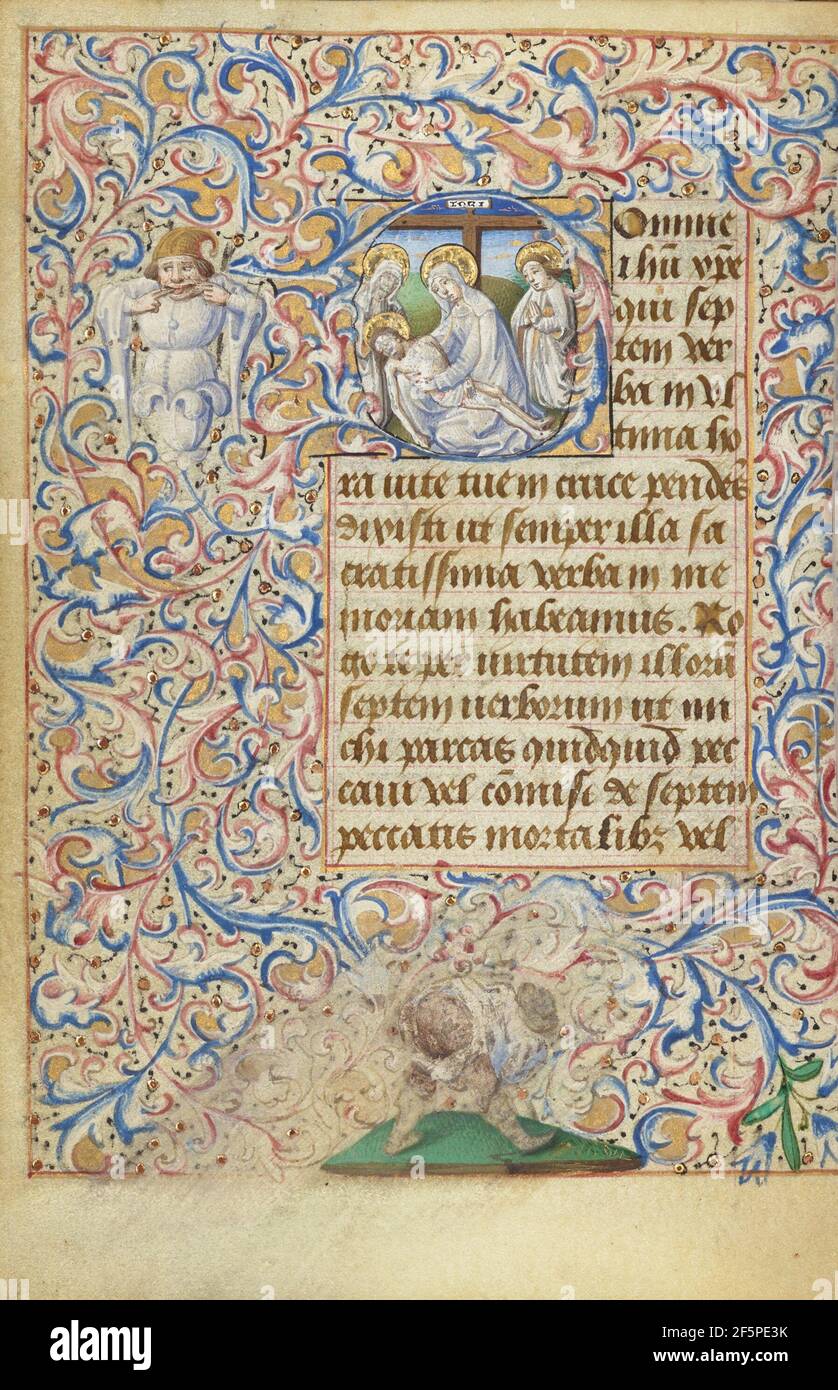 INRI
Omine
ihu xpe
qui sep
tem ver
ba in ul
tima ho
ra uite tue in cruce pendes
dixisti ut semper illa sa
cratissima verba in me
moriam habeamus. Ro
go te per uirtutem illoru
septem uerborum ut mi
chi parcas quidquid pec
caui vel comisi de septem
peccatis mortalibz vel
alamy
Image ID: 2F5PE3K
www.alamy.com